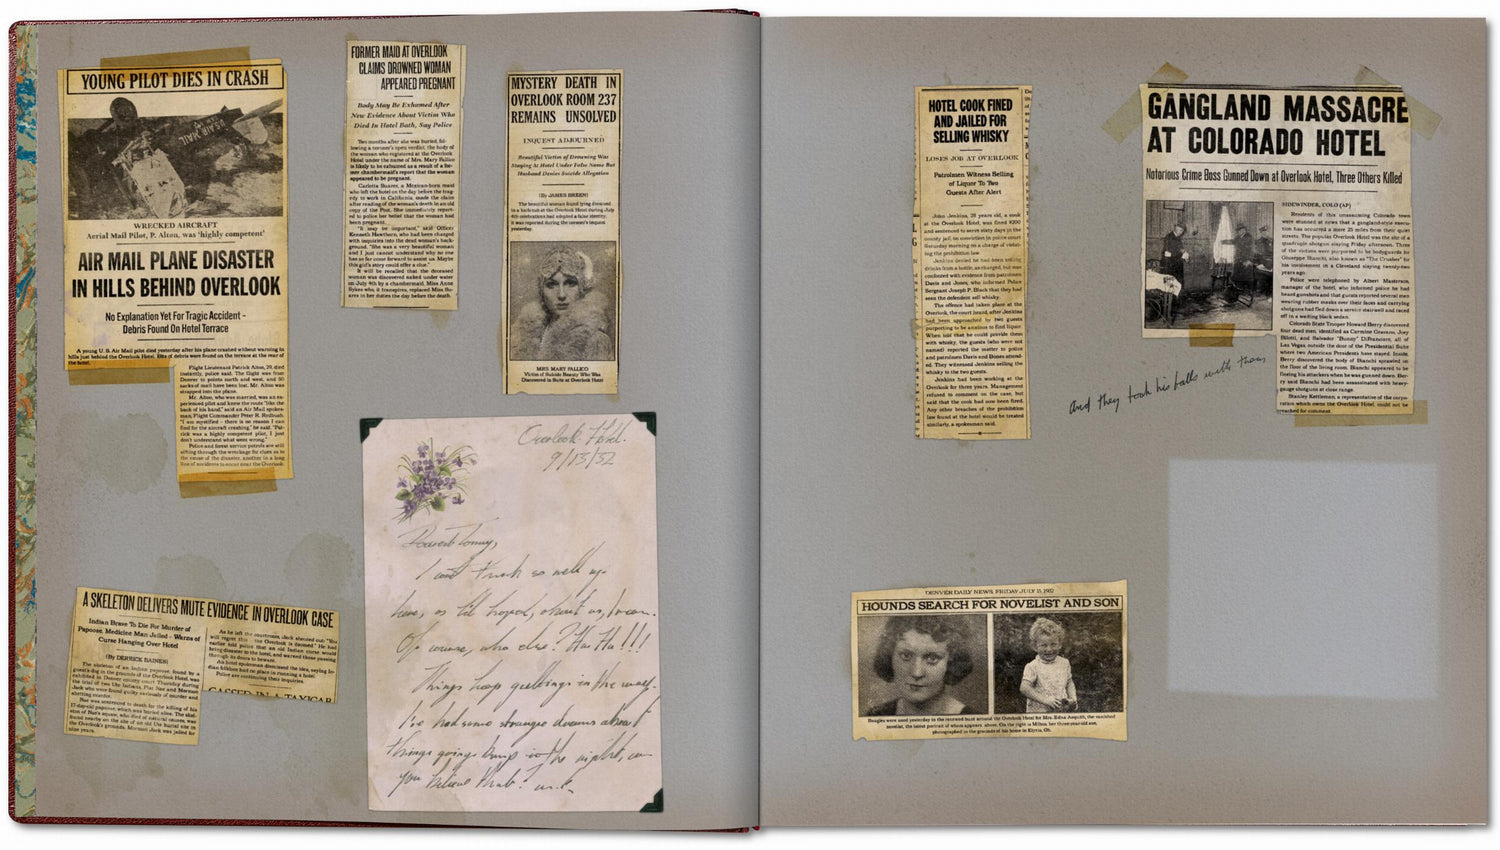 YOUNG PILOT DIES IN CRASH
US AIR MAIL
WRECKED AIRCRAFT
Aerial Mail Pilot, P. Alton, was 'highly competent'
AIR MAIL PLANE DISASTER
IN HILLS BEHIND OVERLOOK
No Explanation Yet For Tragic Accident -
Debris Found On Hotel Terrace
A young U.S. Air Mail pilot died yesterday after his plane crashed without warning in
hills just behind the Overlook Hotel. Bits of debris were found on the terrace at the rear of
the hotel.
Flight Lieutenant Patrick Alton, 29, died
instantly, police said. The flight was from
Denver to points north and west, and 50
sacks of mail have been lost. Mr. Alton was
strapped into the plane.
Mr. Alton, who was married, was an ex-
perienced pilot and knew the route "like the
back of his hand," said an Air Mail spokes-
man, Flight Commander Peter R. Redbush.
"I am mystified - there is no reason I can
find for the aircraft crashing," he said. "Pat-
rick was a highly competent pilot, I just
don't understand what went wrong."
Police and forest service patrols are still
sifting through the wreckage for clues as to
the cause of the disaster, another in a long
line of accidents to occur near the Overlook.
FORMER MAID AT OVERLOOK
CLAIMS DROWNED WOMAN
APPEARED PREGNANT
Body May Be Exhumed After
New Evidence About Victim Who
Died In Hotel Bath, Say Police
Two months after she was buried, fol-
lowing a coroner's open verdict, the body of
the woman who registered at the Overlook
Hotel under the name of Mrs. Mary Fallico
is likely to be exhumed as a result of a for-
mer chambermaid's report that the woman
appeared to be pregnant.
Carlotta Suarez, a Mexican-born maid
who left the hotel on the day before the trag-
edy to work in California, made the claim
after reading of the woman's death in an old
copy of the Post. She immediately report-
ed to police her belief that the woman had
been pregnant.
"It may be important," said Officer
Kenneth Hawthorn, who had been charged
with inquiries into the dead woman's back-
ground. "She was a very beautiful woman
and I just cannot understand why no one
has so far come forward to assist us. Maybe
this girl's story could offer a clue."
It will be recalled that the deceased
woman was discovered naked under water
on July 4th by a chambermaid, Miss Anne
Sykes who, it transpires, replaced Miss Su-
arez in her duties the day before the death.
MYSTERY DEATH IN
OVERLOOK ROOM 237
REMAINS UNSOLVED
INQUEST ADJOURNED
Beautiful Victim of Drowning Was
Staying At Hotel Under False Name But
Husband Denies Suicide Allegation
(By JAMES BREEN)
The beautiful woman found lying drowned
in a bathtub at the Overlook Hotel during July
4th celebrations had adopted a false identity,
it was reported during the women's inquest
yesterday.
MRS MARY FALLICO
Victim of Suicide Beauty Who Was
Discovered in Bath at Overlook Hotel
Overlook Hotel.
9/13/32
Dearest Tommy,
I can't think so well up
here, as I'd hoped, about us, I mean.
Of course, who else? Ha Ha!!!
Things keep getting in the way.
I've had some strange dreams about
things going bump in the night, can
you believe that?
A SKELETON DELIVERS MUTE EVIDENCE IN OVERLOOK CASE
Indian Brave To Die For Murder of
Papoose. Medicine Man Jailed - Warns of
Curse Hanging Over Hotel
(By DERRICK BAINES)
The skeleton of an Indian papoose found by a
guest's dog in the grounds of the Overlook Hotel, was
exhibited in Denver county court Thursday during
the trial of two Ute Indians, Flat Nez and Mormon
Jack who were found guilty variously of murder and
abetting murder.
Nez was sentenced to death for the killing of his
17-day-old papoose, which was buried alive. The skel-
eton of Nez's squaw, who died of natural causes, was
found nearby on the site of an old Ute burial site in
the Overlook's grounds. Mormon Jack was jailed for
nine years.
As he left the courtroom, Jack shouted out: "You
will regret this - the Overlook is doomed." He had
earlier told police that an old Indian curse would
bring disaster to the hotel, and warned those passing
through its doors to beware.
An hotel spokesman dismissed the idea, saying In-
dian folklore had no place in running a hotel.
Police are continuing their inquiries.
GASSED IN A TAXICAB
HOTEL COOK FINED
AND JAILED FOR
SELLING WHISKY
LOSES JOB AT OVERLOOK
Patrolmen Witness Selling
of Liquor To Two
Guests After Alert
John Jenkins, 28 years old, a cook
at the Overlook Hotel, was fined $200
and sentenced to serve sixty days in the
county jail, on conviction in police court
Saturday morning on a charge of violat-
ing the prohibition law.
Jenkins denied he had been selling
drinks from a bottle, as charged, but was
confronted with evidence from patrolmen
Davis and Jones, who informed Police
Sergeant Joseph P. Black that they had
seen the defendant sell whisky.
The offence had taken place at the
Overlook, the court heard, after Jenkins
had been approached by two guests
purporting to be anxious to find liquor.
When told that he could provide them
with whisky, the guests (who were not
named) reported the matter to police
and patrolmen Davis and Bones attend-
ed. They witnessed Jenkins selling the
whisky to the two guests.
Jenkins had been working at the
Overlook for three years. Management
refused to comment on the case, but
said that the cook had now been fired.
Any other breaches of the prohibition
law found at the hotel would be treated
similarly, a spokesman said.
GANGLAND MASSACRE
AT COLORADO HOTEL
Notorious Crime Boss Gunned Down at Overlook Hotel, Three Others Killed
SIDEWINDER, COLO (AP)
Residents of this unassuming Colorado town
were stunned at news that a gangland-style execu-
tion has occurred a mere 25 miles from their quiet
streets. The popular Overlook Hotel was the site of a
quadruple shotgun slaying Friday afternoon. Three
of the victims were purported to be bodyguards for
Giuseppe Bianchi, also known as "The Crusher" for
his involvement in a Cleveland slaying twenty-two
years ago.
Police were telephoned by Albert Masterson,
manager of the hotel, who informed police he had
heard gunshots and that guests reported several men
wearing rubber masks over their faces and carrying
shotguns had fled down a service stairwell and raced
off in a waiting black sedan.
Colorado State Trooper Howard Berry discovered
four dead men, identified as Carmine Grasson, Joey
Bilotti, and Salvador "Bunny" DiFrancore, all of
Las Vegas, outside the door of the Presidential Suite
where two American Presidents have stayed. Inside,
Berry discovered the body of Bianchi sprawled on
the floor of the living room. Bianchi appeared to be
fleeing his attackers when he was gunned down. Ber-
ry said Bianchi had been assassinated with heavy-
gauge shotguns at close range.
Stanley Kettleman, a representative of the corpo-
ration which owns the Overlook Hotel, could not be
reached for comment.
And they took his balls with them
DENVER DAILY NEWS, FRIDAY JULY 15, 1912
HOUNDS SEARCH FOR NOVELIST AND SON
Beagles were used yesterday in the renewed hunt around the Overlook Hotel for Mrs. Edna Asquith, the vanished
novelist, the latest portrait of whom appears above. On the right is Milton, her three-year-old son,
photographed in the grounds of his home in Elyria, Oh.